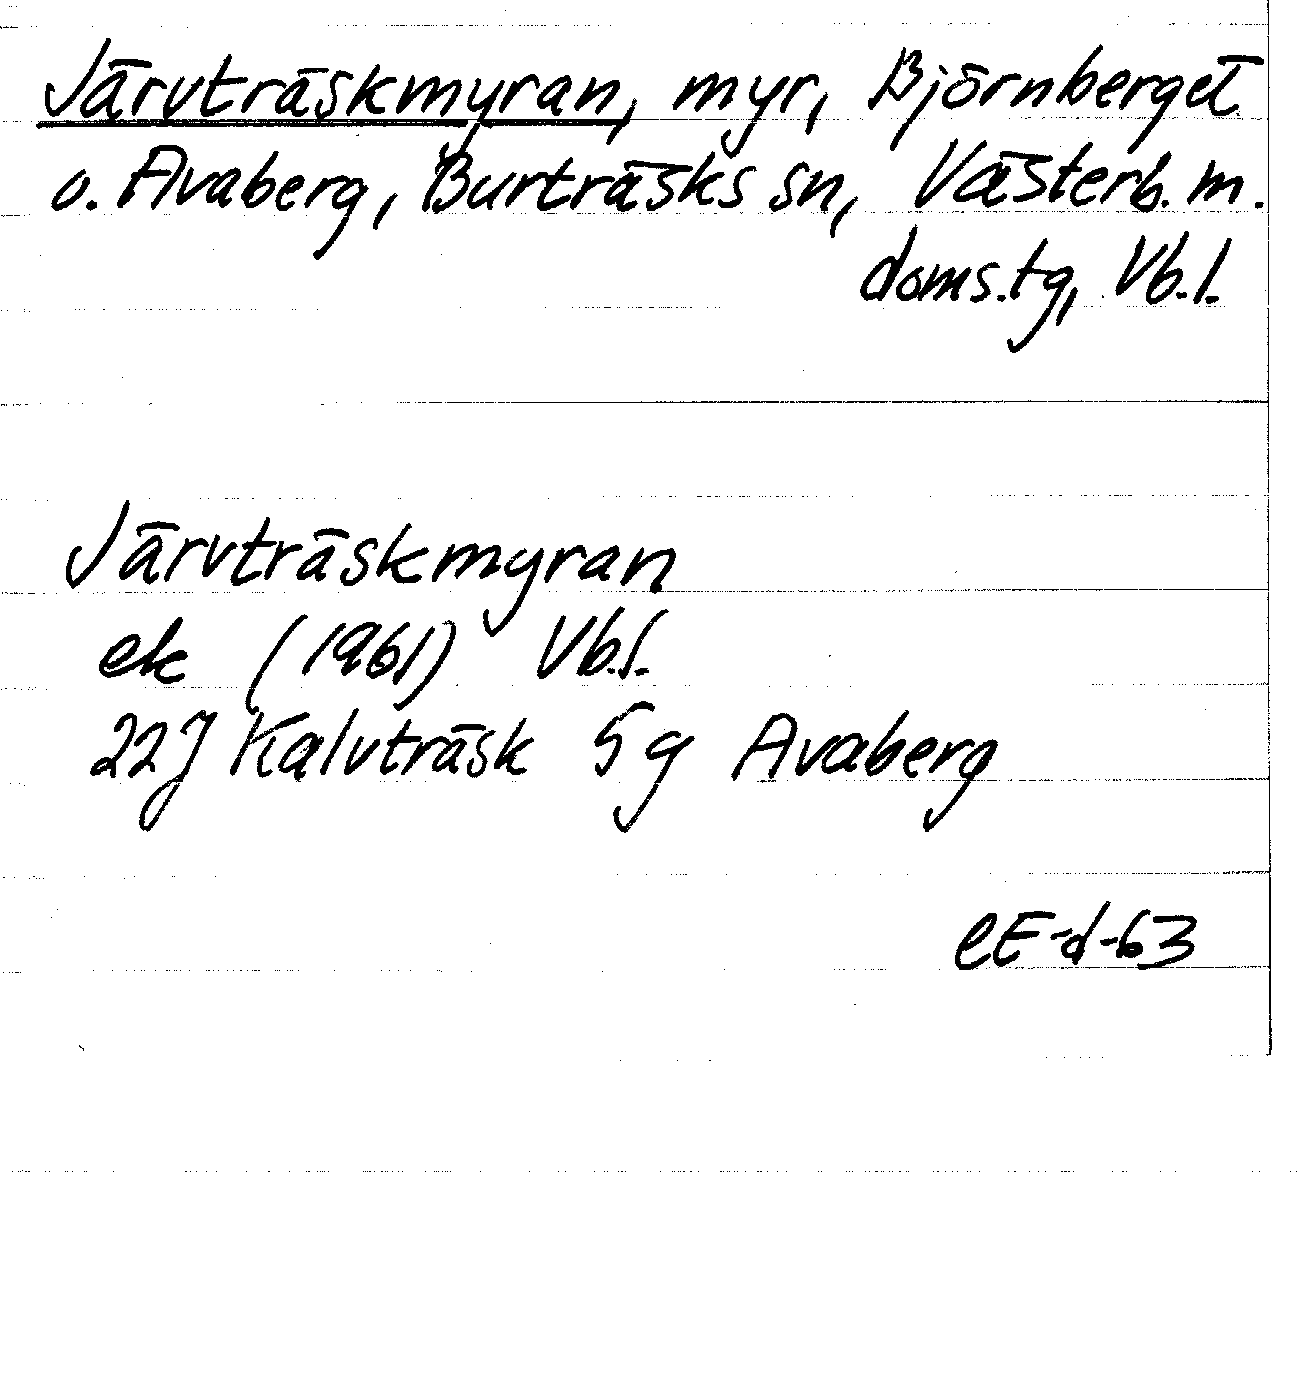 Järvträskmyran, myr, Björnberget
o. Avaberg, Burträsks sn, Västerb. m.
doms.tg, Vb.l.
Järvträskmyran
ek (1961) Vb.l.
22J Kalvträsk 5g Avaberg
eE-d-63